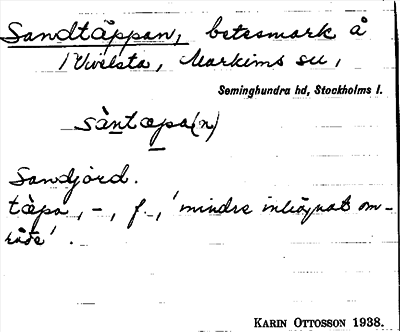 Sandtäppan, betesmark å
Vivelsta, Markims sn,
Seminghundra hd, Stockholms l.
sàntæpa(n)
Sandjord.
tæ̀pa, -, f., 'mindre inhägnat om-
råde'.
KARIN OTTOSSON 1938.